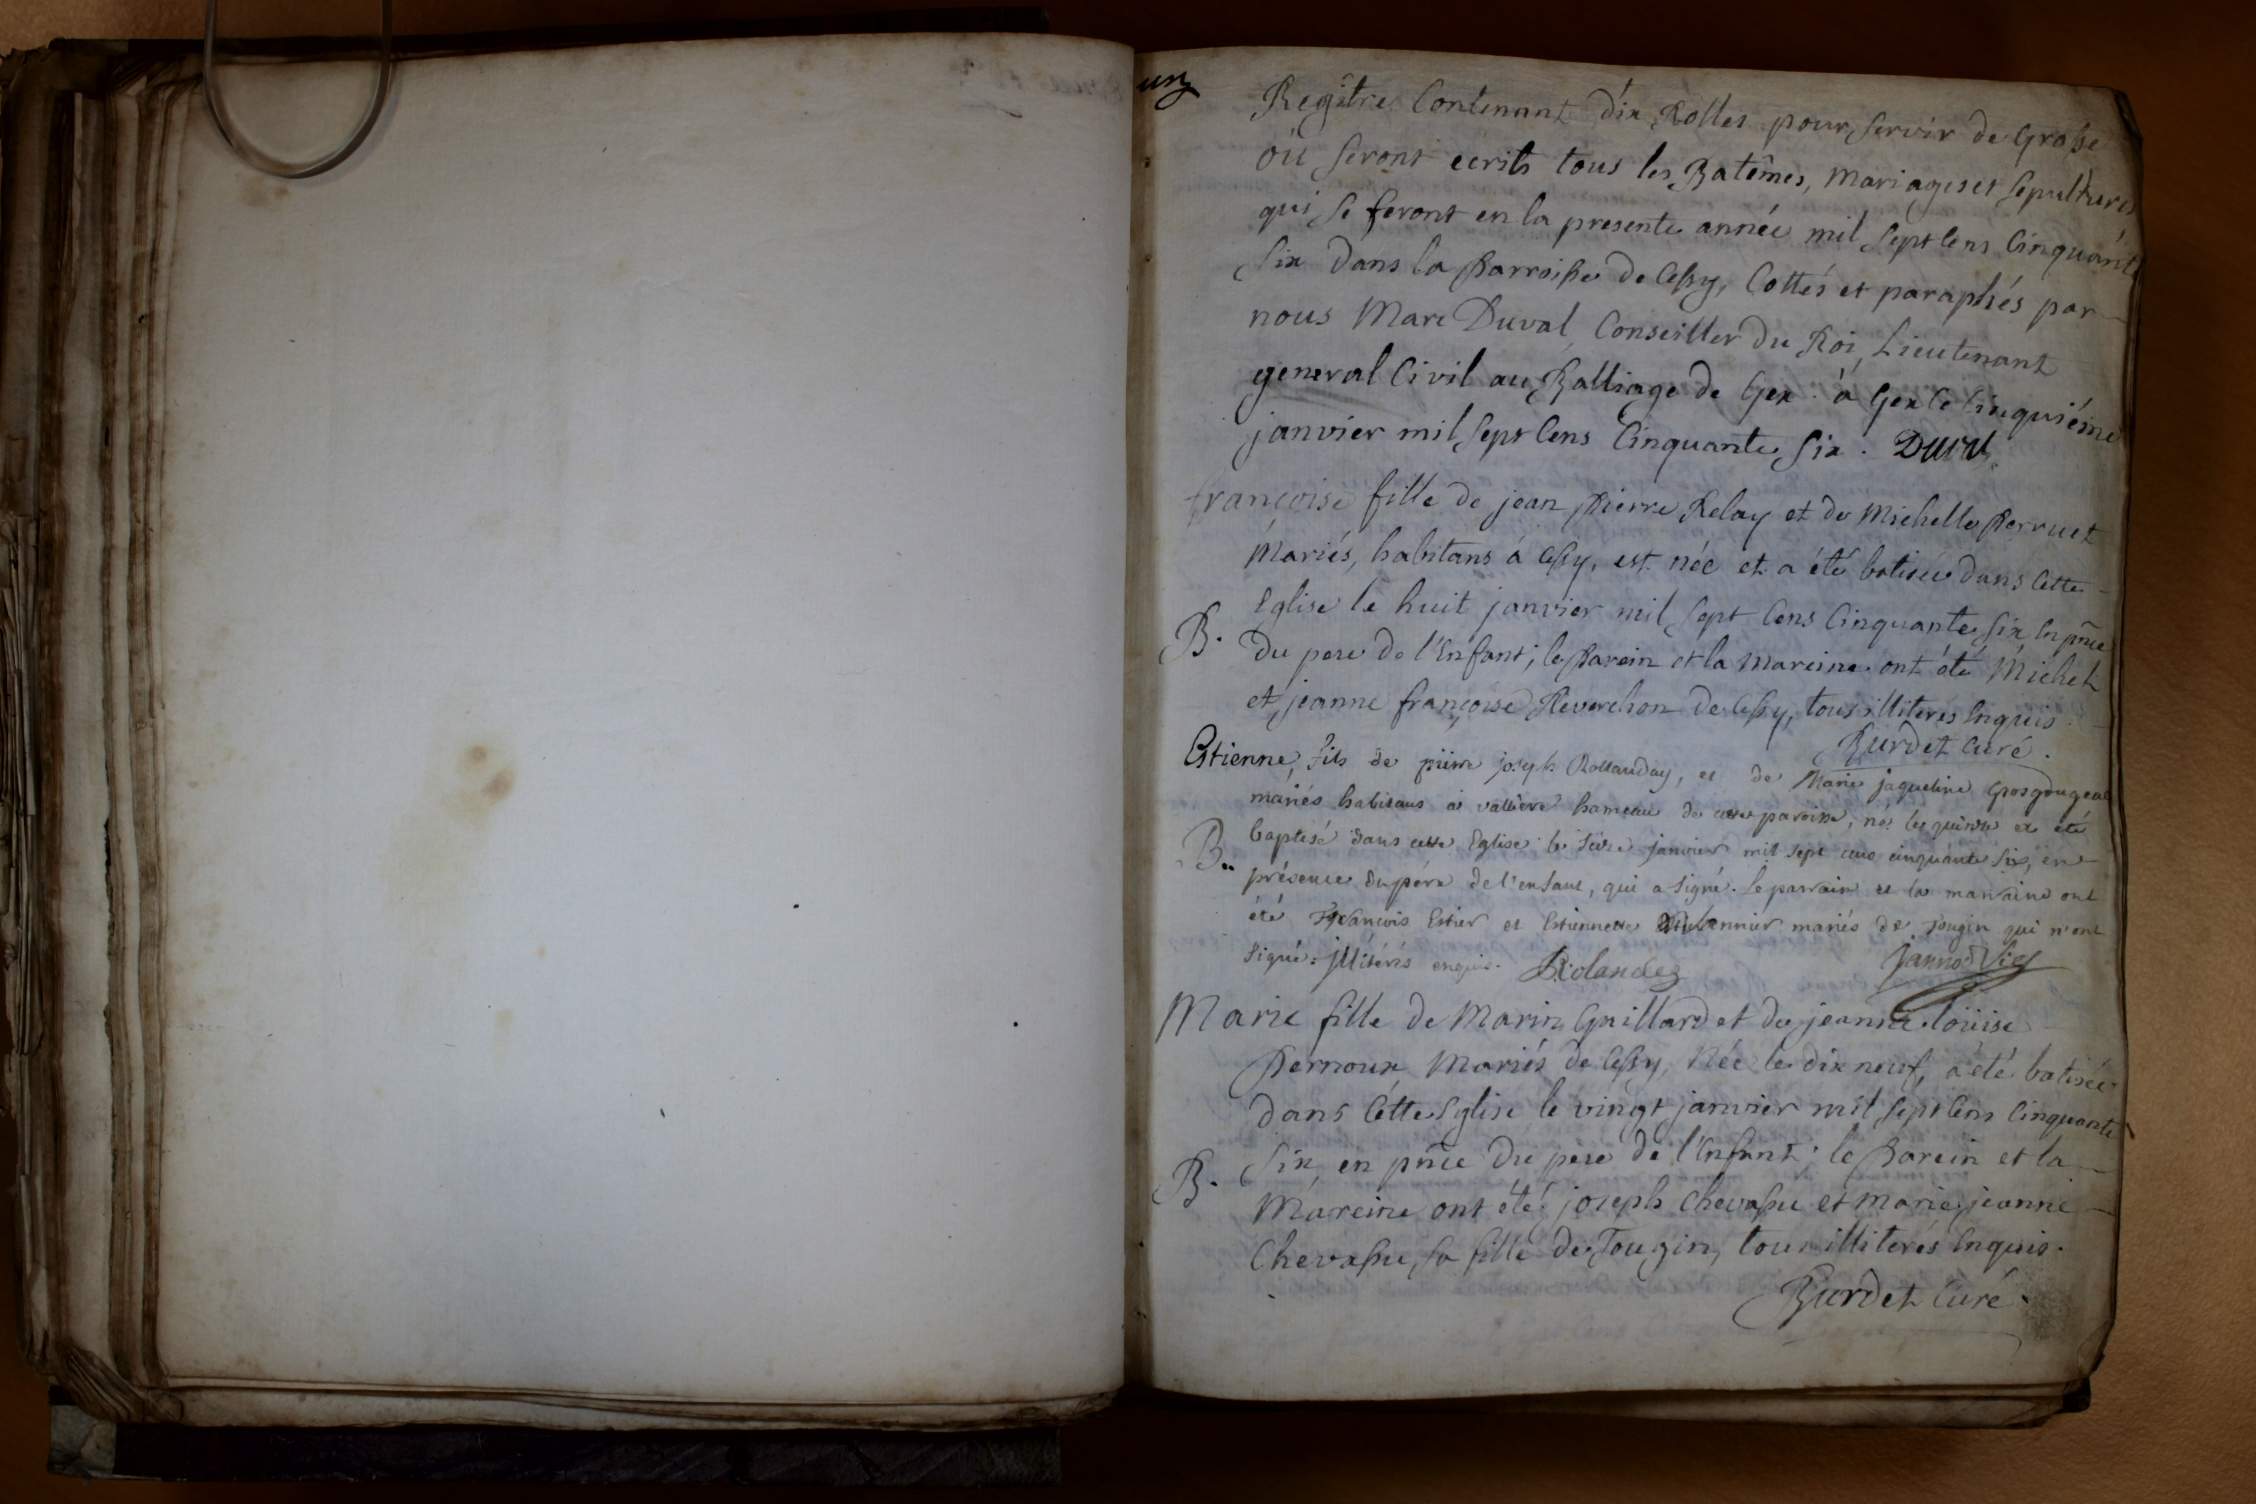 un
Regître Contenant dix Rolles pour servir de Grosse
où seront ecrits tous les Batêmes, Mariages et Sepultures
qui se feront en la presente année mil sept Cens Cinquante
six dans la Parroisse de Cessy, Cottés et paraphés par
nous Marc Duval, Conseiller du Roi, Lieutenant
general Civil au Balliage de Gex. à Gex le Cinquiéme
janvier mil sept Cens Cinquante six. Duval
françoise fille de jean Pierre Relay et de Michelle Perruet
Mariés, habitans á Cessy, est née et a été batisée dans Cette
Eglise le huit janvier mil sept Cens Cinquante six En pñce
B. du pere de l'Enfant; le Parein et la Mareine ont été Michel
et jeanne françoise Reverchon de Cessy, tous illiterés Enquis.
Burdet Curé.
Estienne, fils de pierre joseph Rollanday, et de Marie jaqueline Grosgougeat
mariés habitans à vallière hameau de cette paroisse, né le quinze et été
B. baptisé dans cette Eglise le seize janvier mil sept cens cinquante six, en
présence du pére de l'enfant, qui a signé. le parrain et la marraine ont
été François Estier et Estiennette mariés de Tougin qui n'ont
signé: jllitérés enquis. Rolandez
Marie fille de Marin Gaillard et de jeanne loüise
Pernoux Mariés de Cessy, Née le dix neuf, a été batisée
dans Cétte Eglise le vingt janvier mil sept Cens Cinquante
B. six, en pñce du pere de l'Enfant; le Parein et la
Mareine ont été joseph Chevassu et marie jeanne
Chevassu, sa fille de Tougin, tous illiterés Enquis.
Burdet Curé.